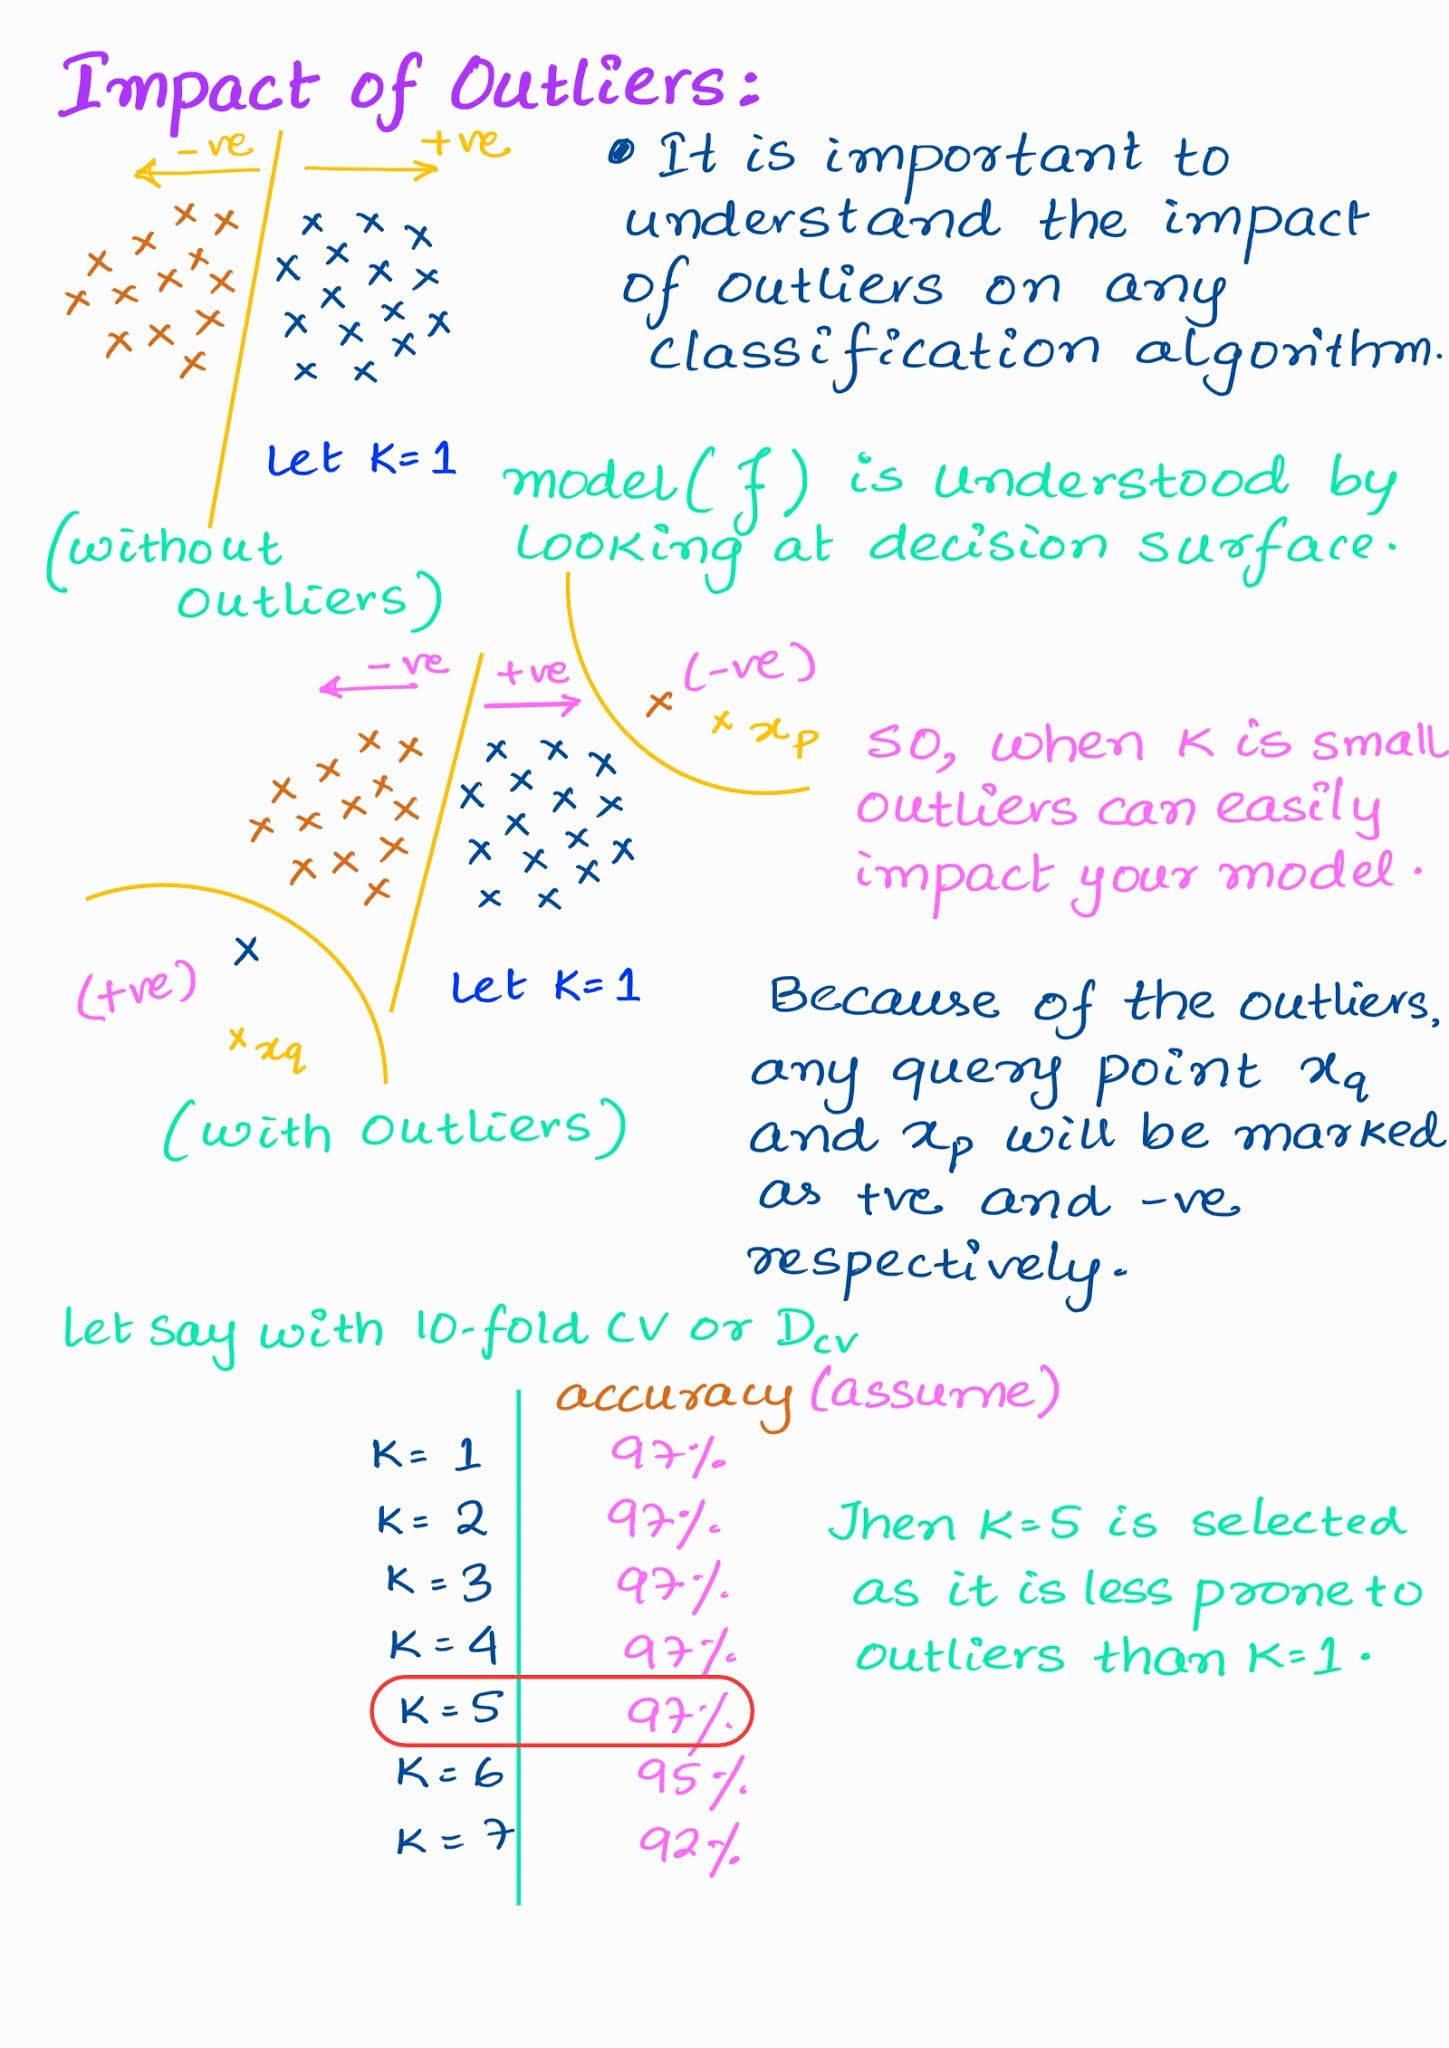 Impact of Outliers:
-ve
+ve
• It is important to
understand the impact
of outliers on any
classification algorithm.
Let K=1
(without
outliers)
model(f) is understood by
looking at decision surface.
-ve
+ve
(-ve)
xp
So, when K is small
outliers can easily
impact your model.
(+ve)
xq
Let K=1
(with outliers)
Because of the outliers,
any query point xq
and xp will be marked
as +ve and -ve
respectively.
Let say with 10-fold CV or Dcv
accuracy (assume)
K= 1 97%
K= 2 97%
K = 3 97%
K = 4 97%
K = 5 97%
K = 6 95%
K = 7 92%
Then K=5 is selected
as it is less prone to
outliers than K=1.